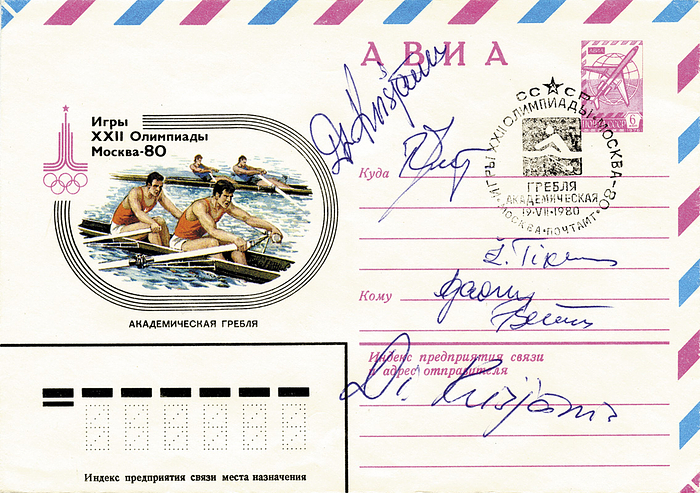 АВИА
АВИА
ПОЧТА СССР
6
Игры
XXII Олимпиады
Москва-80
СССР
ИГРЫ XXII ОЛИМПИАДЫ МОСКВА-80
ГРЕБЛЯ
АКАДЕМИЧЕСКАЯ
19·VII·1980
МОСКВА·ПОЧТАМТ
Куда
Кому
АКАДЕМИЧЕСКАЯ ГРЕБЛЯ
Индекс предприятия связи
и адрес отправителя
Di. Krišjānis
Индекс предприятия связи места назначения